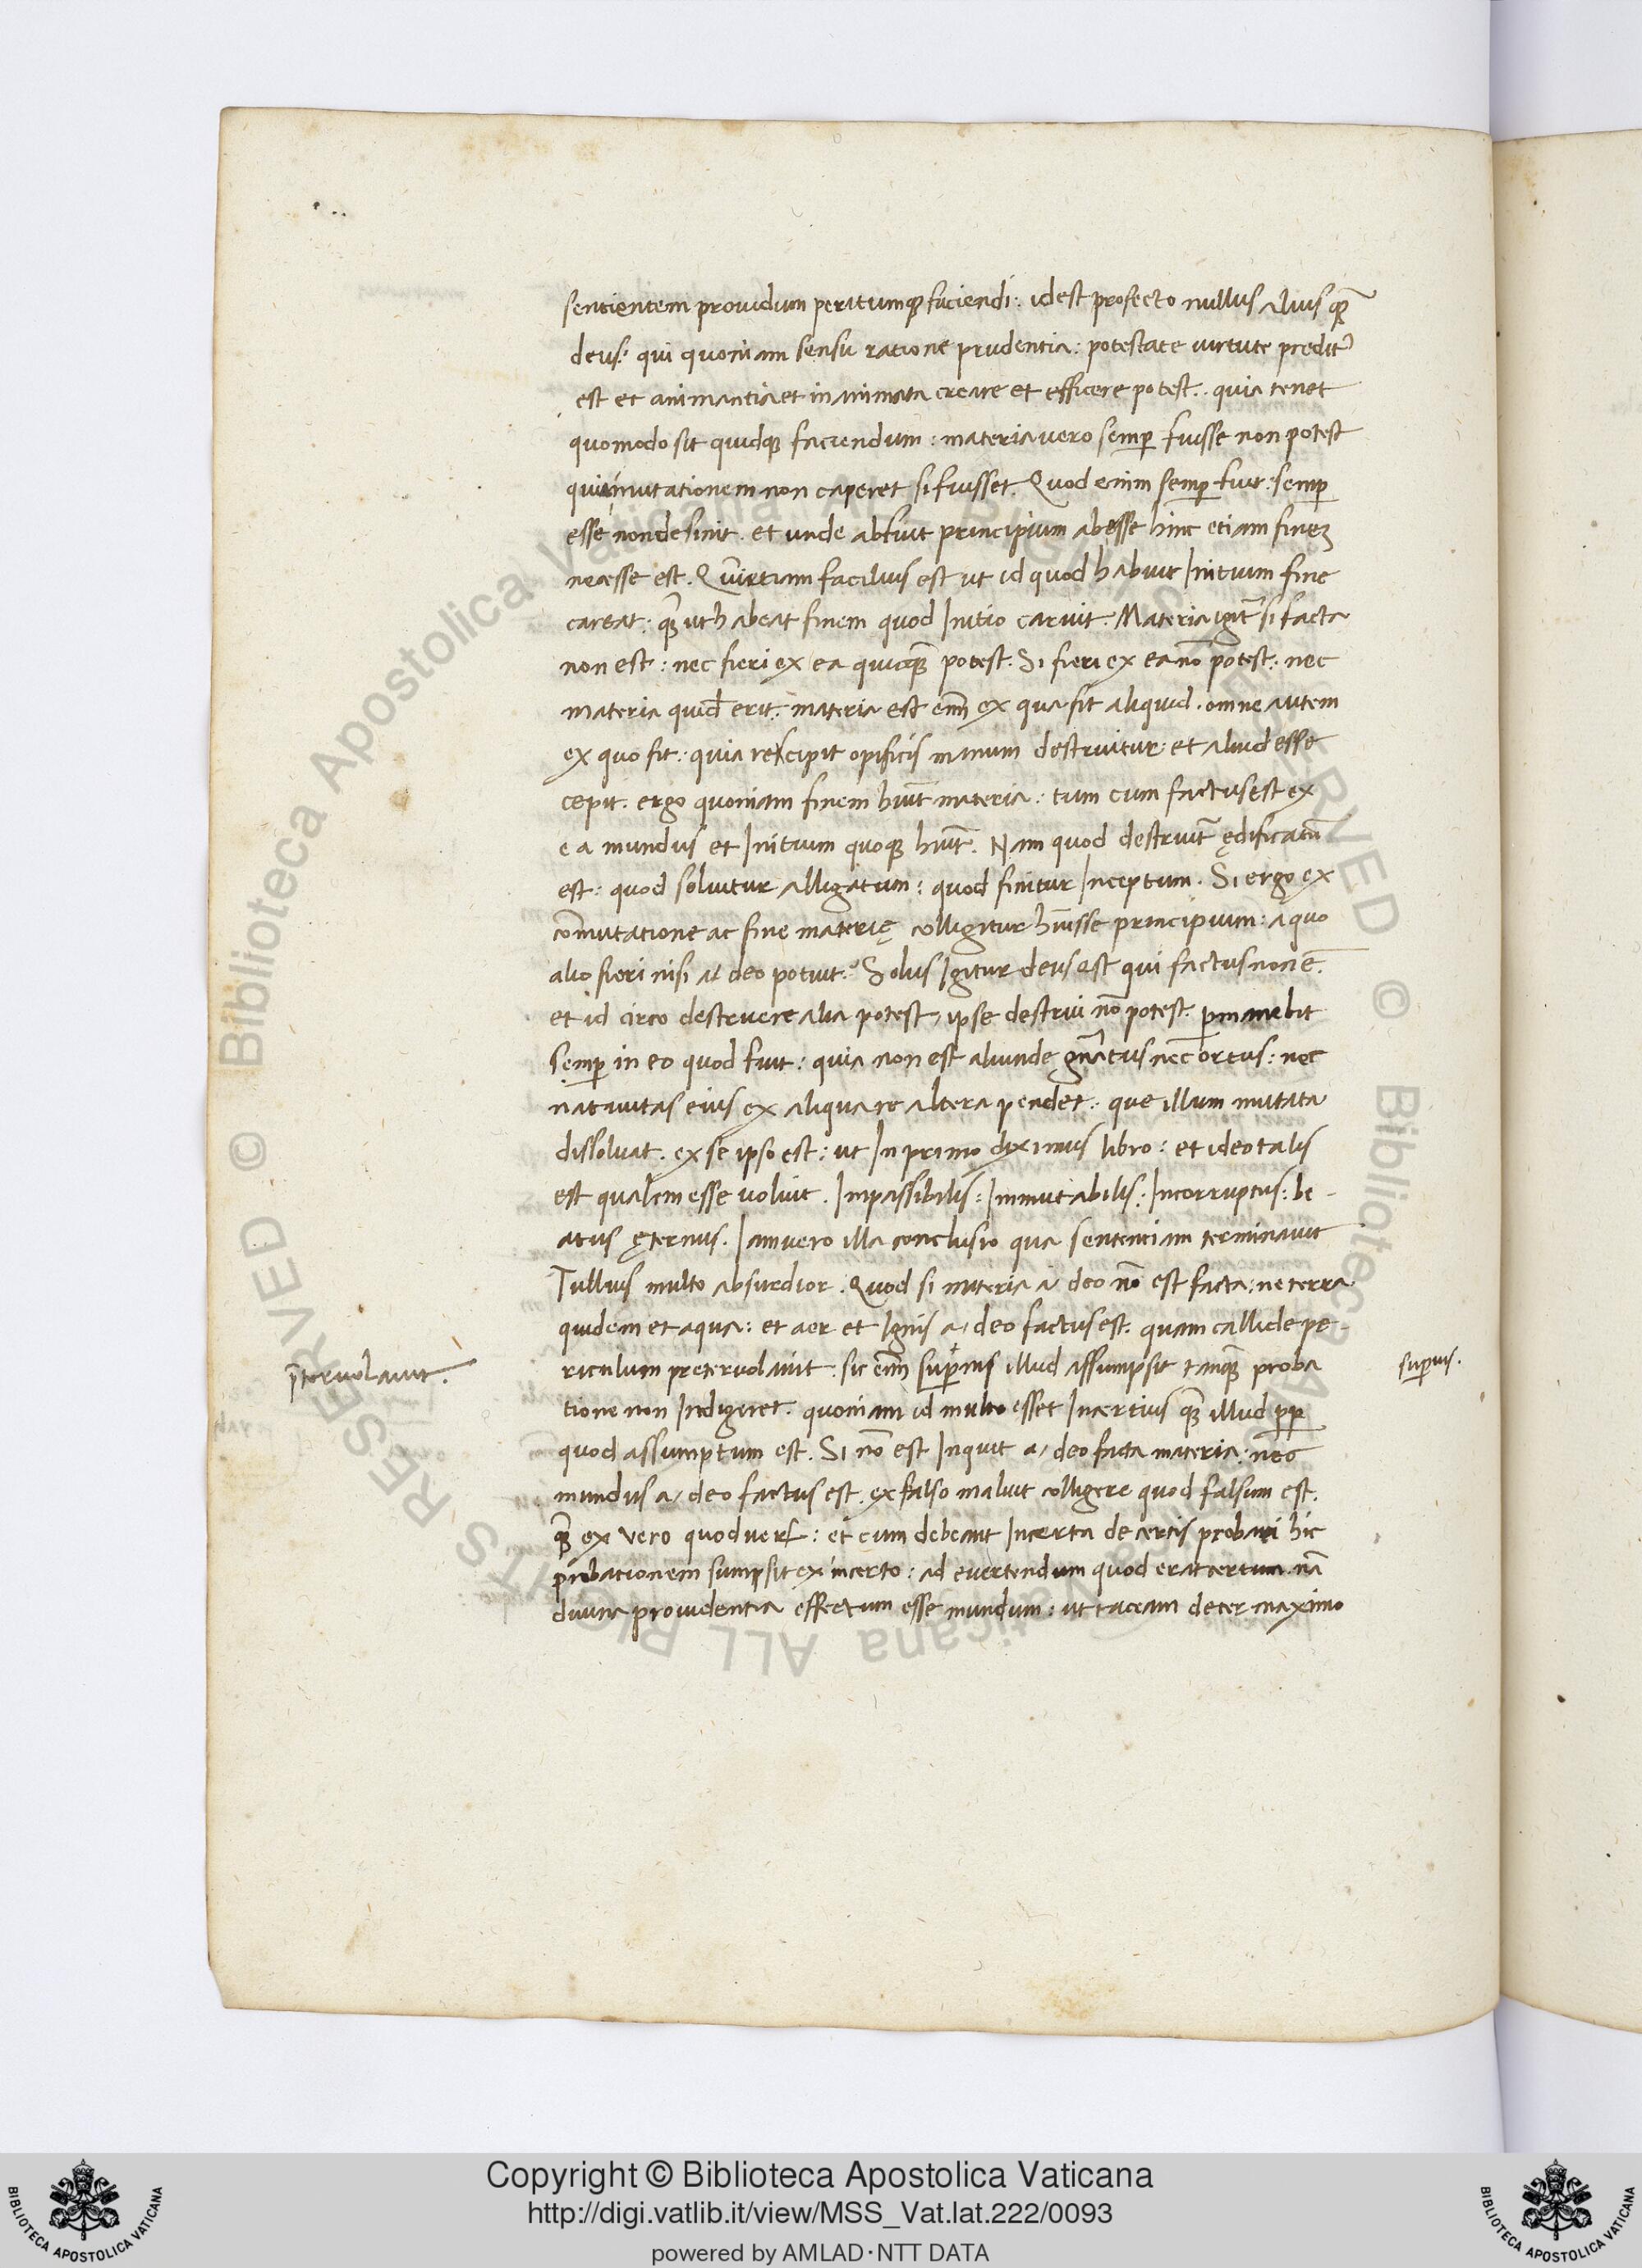 sentientem prouidum peritumqꝫ faciendi: idest profecto nullus alius qꝫ̄
deus: qui quoniam sensu ratione prudentia: potestate uirtute preditꝰ
est et animantia et inanimata creare et efficere potest. quia tenet
quomodo sit quidqꝫ faciendum: materia uero semꝑ fuisse non potest
quia mutationem non caperet si fuisset. Quod enim semꝑ fuit: semꝑ
esse non desinit. et unde abfuit principium abesse hinc etiam fineꝫ
necesse est. Quin etiam facilius est ut id quod habuit Initium fine
careat: qꝫ̄ ut habeat finem quod Initio caruit. Materia igit̃ si facta
non est: nec fieri ex ea quicqꝫ̄ potest. Si fieri ex ea nō potest: nec
materia quid̄ erit. materia est eni̅ ex qua fit aliquid. omne autem
ex quo fit: quia recipit opificis manum destruitur: et aliud esse
cepit. ergo quoniam finem hūit materia: tum cum factus est ex
ea mundus et Initium quoqꝫ hūit. Nam quod destruit̃ ędificatū
est: quod soluitur alligatum: quod finitur Inceptum. Si ergo ex
cōmutatione ac fine materię colligitur hūisse principium: a quo
alio fieri nisi a deo potuit. Solus Igitur deus est qui factus non ē.
et id circo destruere alia potest, ipse destrui nō potest. ꝑmanebit
semꝑ in eo quod fuit: quia non est aliunde gn̄atus nec ortus: nec
natiuitas eius ex aliqua re altera pendet: que illum mutata
dissoluat. ex se ipso est: ut In primo diximus libro: et ideo talis
est qualem esse uoluit. Inpassibilis: Inmutabilis: Incorruptus: be-
atus ęternus. Iam uero illa conclusio qua sententiam terminauit
Tullius multo absurdior. Quod si materia a deo nō est facta: ne terra
quidem et aqua: et aer et Ignis a deo factus est. quam callide pe-
p̄teruolauit.
riculum preteruolauit. sic eni̅ suꝑius illud assumpsit tanqꝫ̄ proba
suꝑius.
tione non Indigeret. quoniam id multo esset Incertius qꝫ̄ illud ꝓp̄
quod assumptum est. Si nō est Inquit a deo facta materia: nec
mundus a deo factus est. ex falso maluit colligere quod falsum est.
qꝫ̄ ex vero quod uerū: et cum debeant Incerta de certis probari hic
probationem sumpsit ex incerto: ad euertendum quod erat certum. nā
diuina prouidentia effectum esse mundum: ut taceam de ter maximo
Copyright © Biblioteca Apostolica Vaticana
http://digi.vatlib.it/view/MSS_Vat.lat.222/0093
powered by AMLAD·NTT DATA